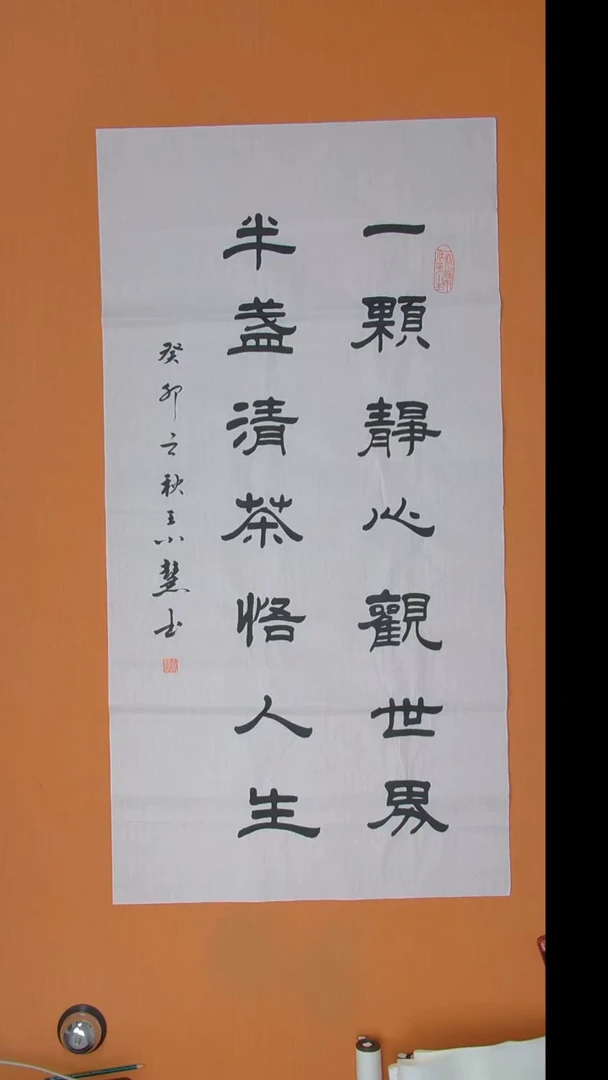 一顆靜心觀世界
半盞清茶悟人生
癸卯之秋王小慧書